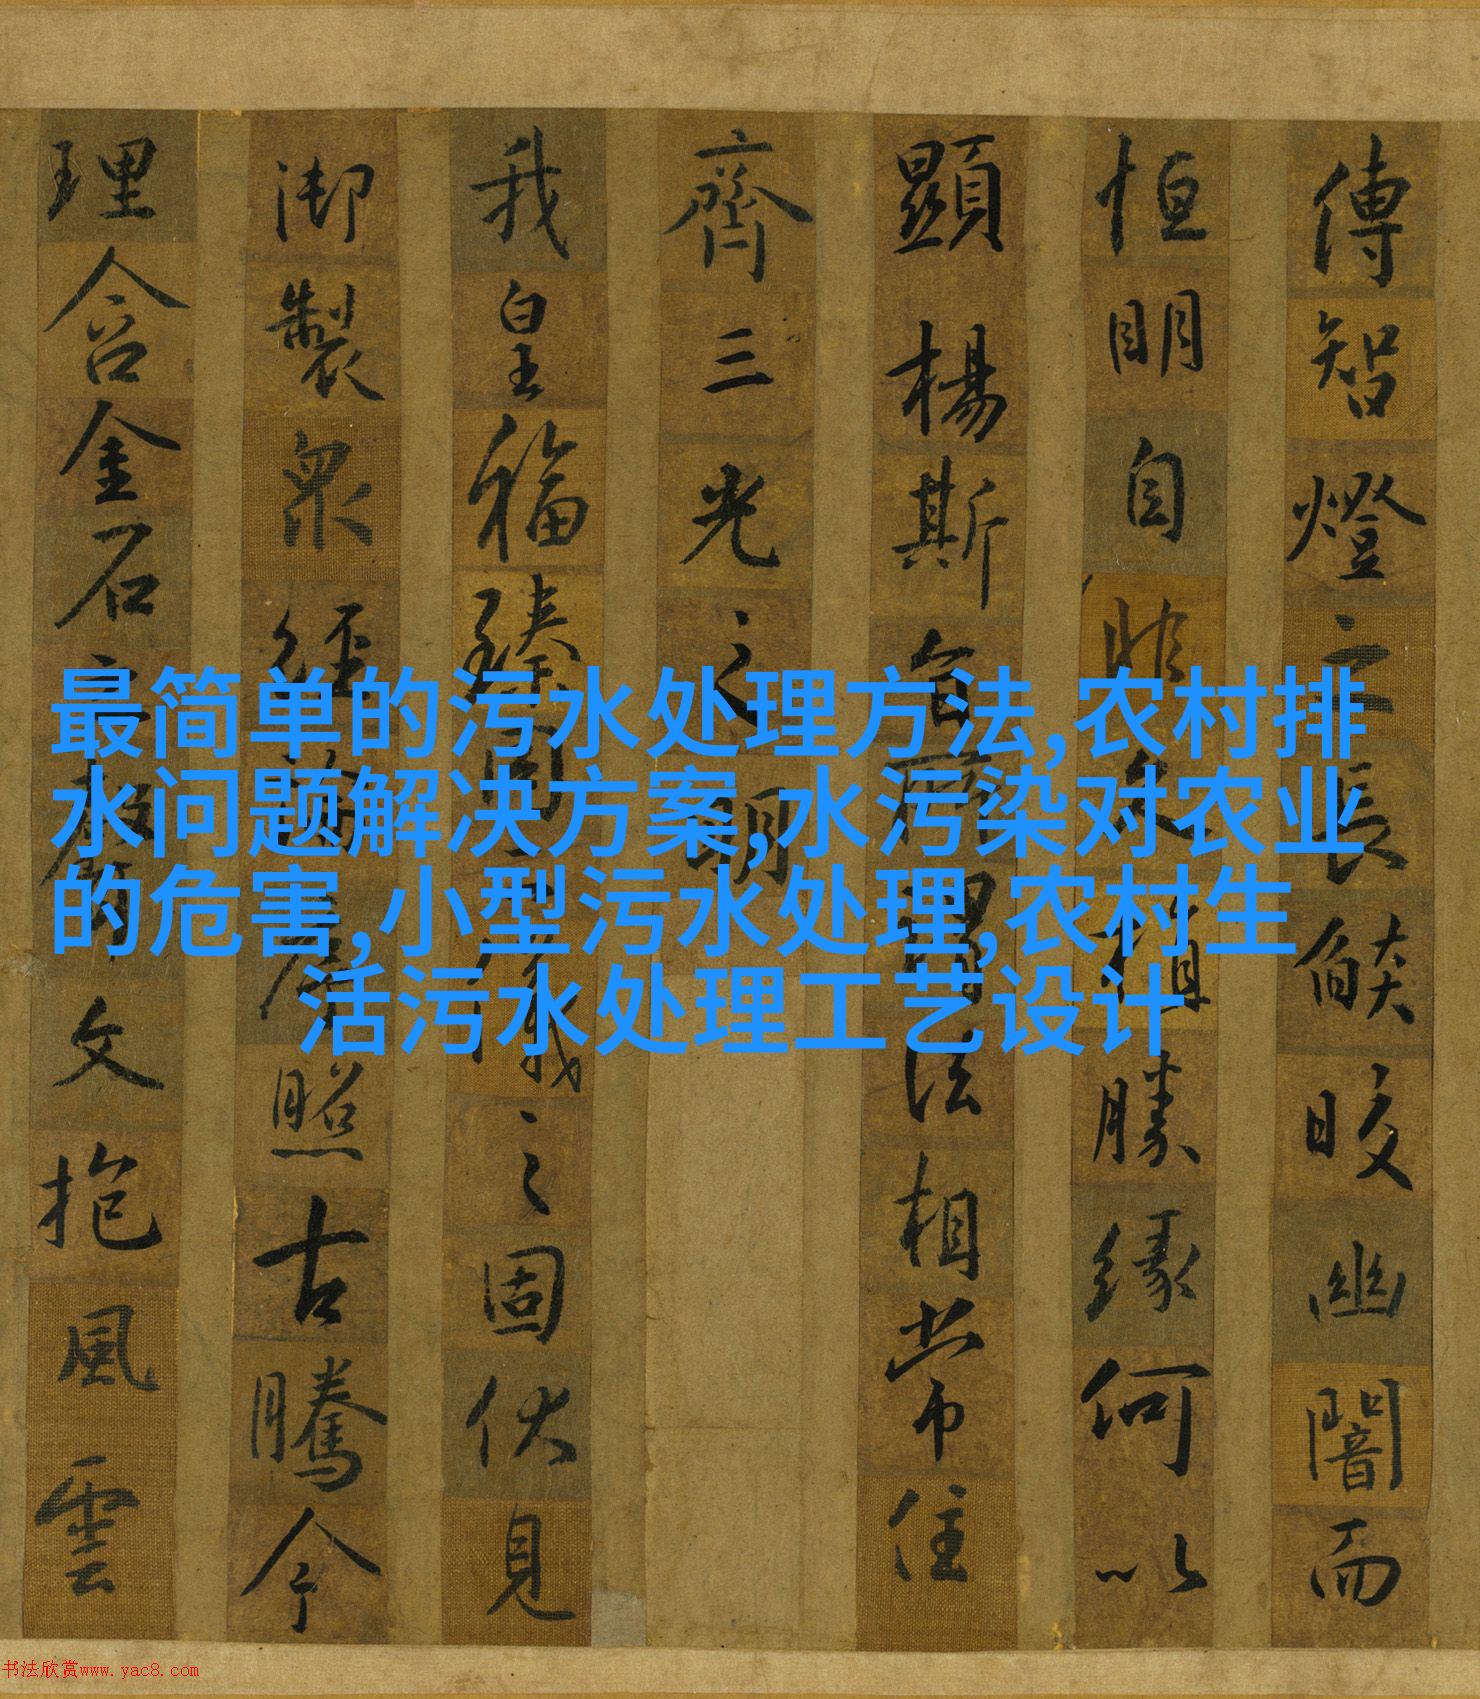 傳智燈之長燄皎幽闇而
恒明自非久植勝緣何以
顯楊斯旨所謂法相常住
齊三光之明
我皇福臻同二儀之固伏見
御製眾經論序照古騰今
理含金石之聲文抱風雲
最简单的污水处理方法,农村排
水问题解决方案,水污染对农业
的危害,小型污水处理,农村生
活污水处理工艺设计
书法欣赏www.yac8.com